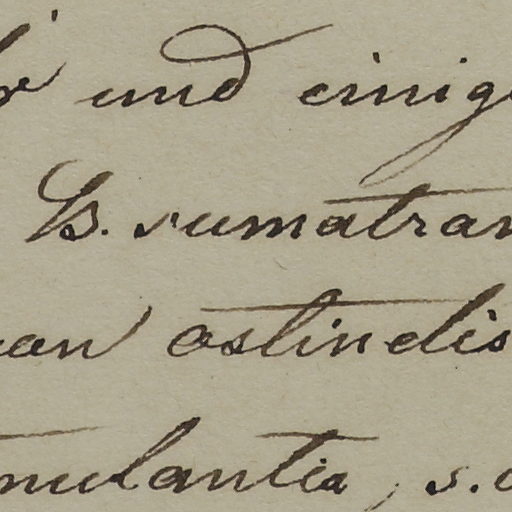 und einig
B. sumatran
ostindis
mulantia, s.